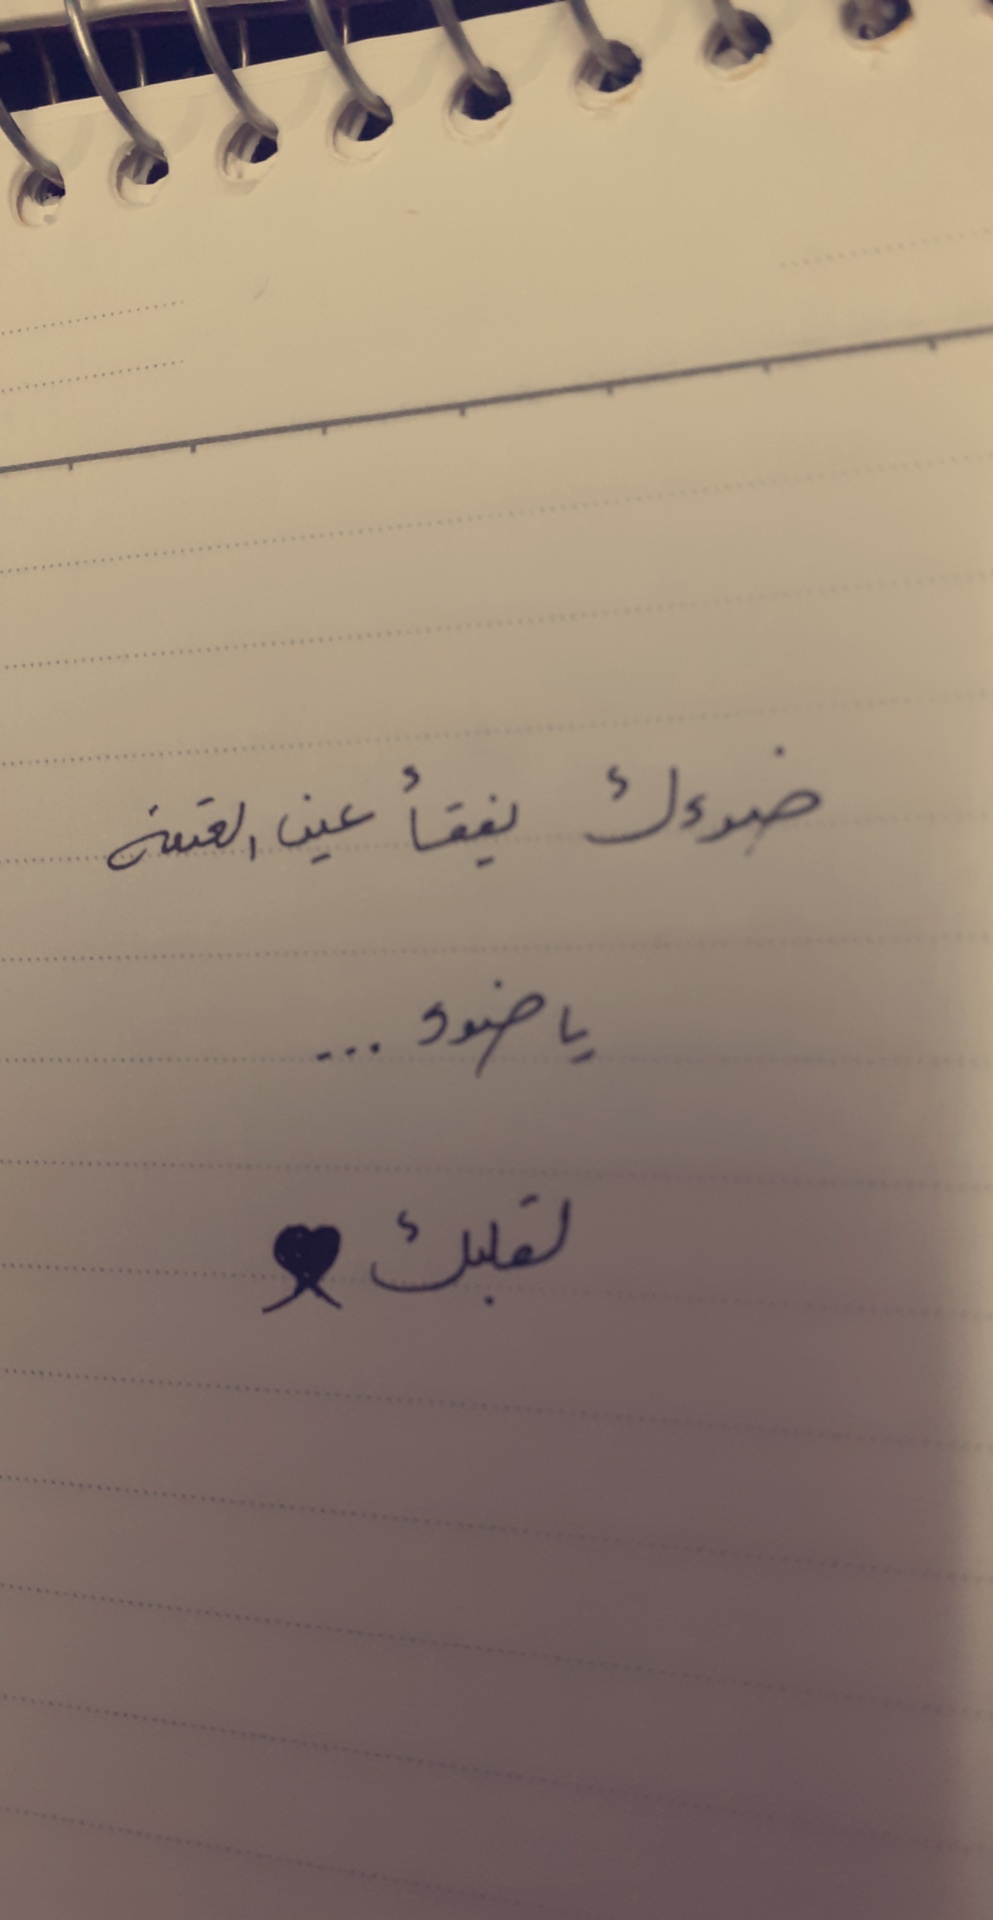 ضوءك يفقأ عين العتمة
يا ضوء ...
لقلبك